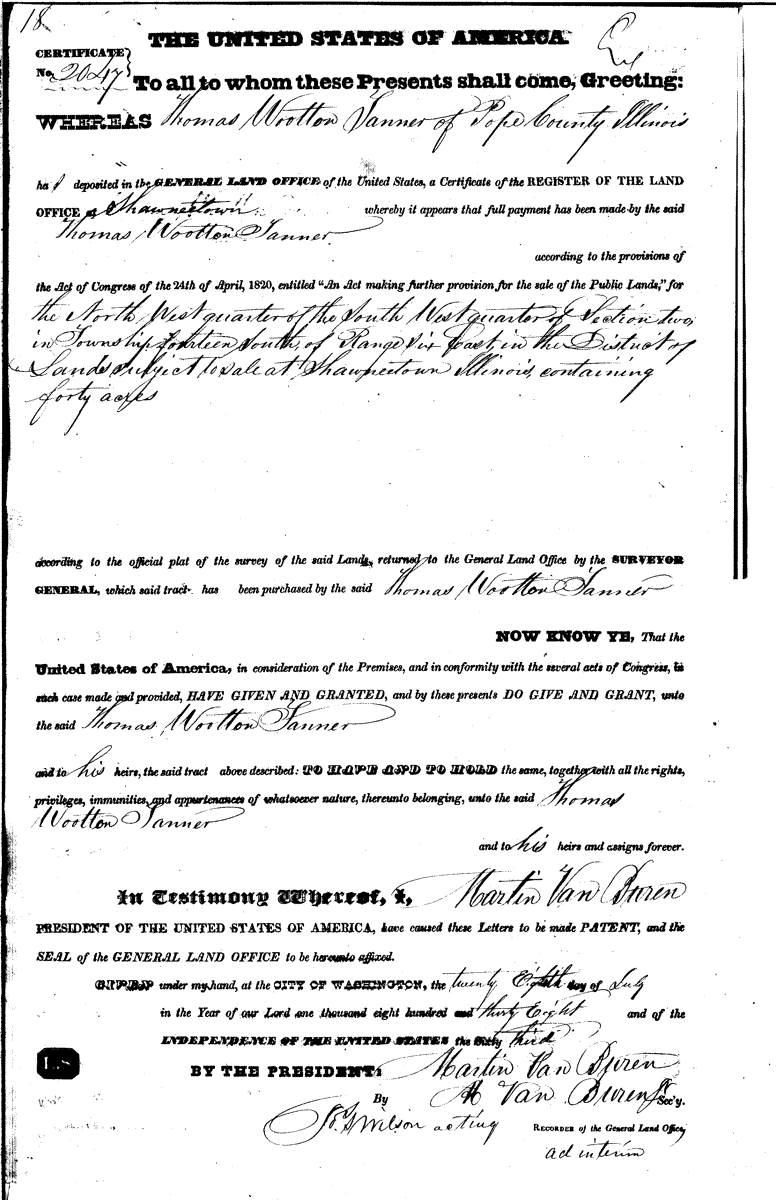 18
THE UNITED STATES OF AMERICA.
CERTIFICATE
No. 2047
To all to whom these Presents shall come, Greeting:
WHEREAS Thomas Wootton Tanner of Pope County Illinois
ha s deposited in the GENERAL LAND OFFICE of the United States, a Certificate of the REGISTER OF THE LAND
OFFICE at Shawneetown whereby it appears that full payment has been made by the said
Thomas Wootton Tanner
according to the provisions of
the Act of Congress of the 24th of April, 1820, entitled "An Act making further provision for the sale of the Public Lands," for
the North West quarter of the South West quarter of Section two,
in Township fourteen South, of Range six East, in the District of
Lands subject to sale at Shawneetown Illinois, containing
forty acres
according to the official plat of the survey of the said Lands, returned to the General Land Office by the SURVEYOR
GENERAL, which said tract has been purchased by the said Thomas Wootton Tanner
NOW KNOW YE, That the
United States of America, in consideration of the Premises, and in conformity with the several acts of Congress, in
such case made and provided, HAVE GIVEN AND GRANTED, and by these presents DO GIVE AND GRANT, unto
the said Thomas Wootton Tanner
and to his heirs, the said tract above described: TO HAVE AND TO HOLD the same, together with all the rights,
privileges, immunities, and appurtenances of whatsoever nature, thereunto belonging, unto the said Thomas
Wootton Tanner
and to his heirs and assigns forever.
In Testimony Whereof, I, Martin Van Buren
PRESIDENT OF THE UNITED STATES OF AMERICA, have caused these Letters to be made PATENT, and the
SEAL of the GENERAL LAND OFFICE to be hereunto affixed.
GIVEN under my hand, at the CITY OF WASHINGTON, the twenty Eighth day of July
in the Year of our Lord one thousand eight hundred and thirty Eight and of the
INDEPENDENCE OF THE UNITED STATES the Sixty third
L.S.
BY THE PRESIDENT: Martin Van Buren
By M Van Buren Jr Sec'y.
acting RECORDER of the General Land Office,
ad interim